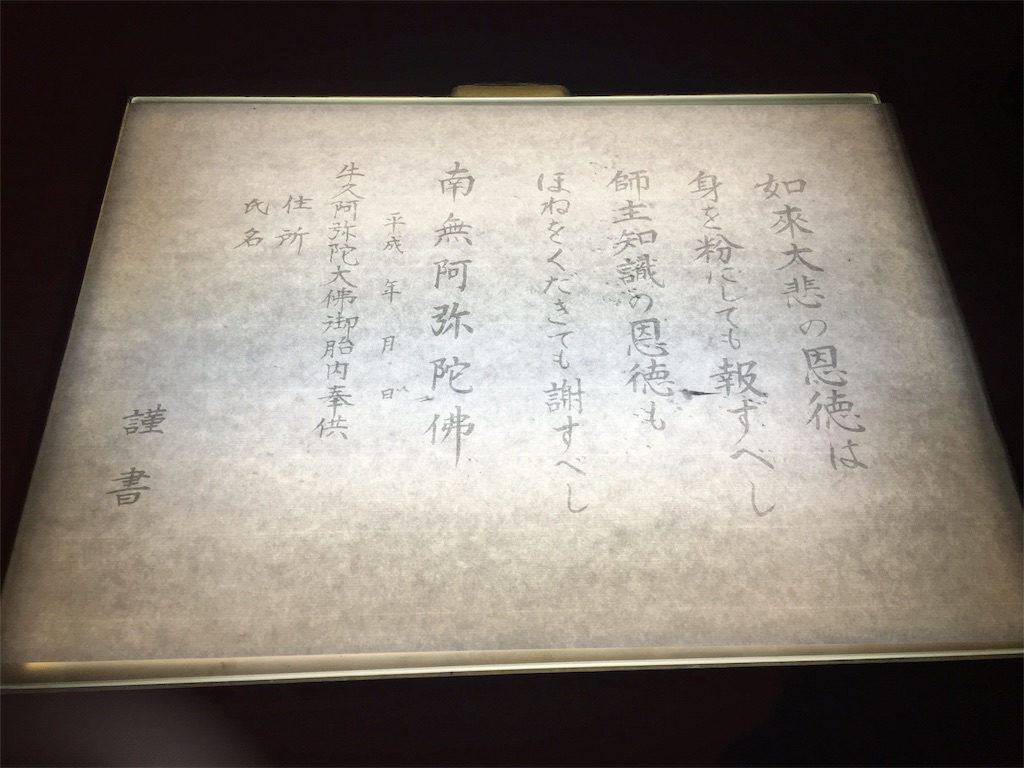 如來大悲の恩徳は
身を粉にしても報ずべし
師主知識の恩徳も
ほねをくだきても謝すべし
南無阿弥陀佛
平成 年 月 日
牛久阿弥陀大佛御胎内奉供
住所
氏名
謹書